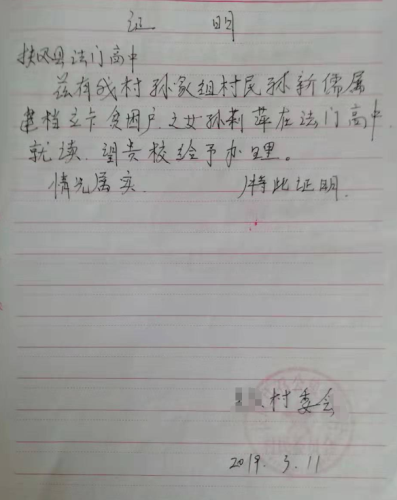 证 明
扶风县法门高中
兹有我村孙家组村民孙新儒属
建档立卡贫困户之女孙莉萍在法门高中
就读，望贵校给予办理。
情况属实 特此证明
村委会
2019. 3. 11